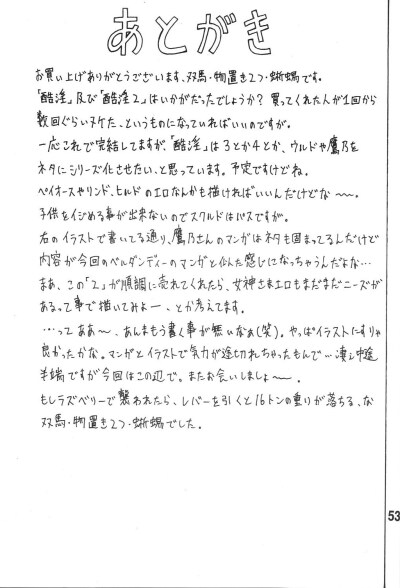 あとがき
お買い上げありがとうございます、双馬・物置き2つ・蜥蜴です。
「酷淫」及び「酷淫2」はいかがだったでしょうか？ 買ってくれた人が1回から
数回ぐらいヌケた、というものになっていればいいのですが。
一応これで完結してますが、「酷淫」は3とか4とか、ウルドや鷹乃を
ネタにシリーズ化させたい、と思っています。予定ですけどね。
ペイオースやリンド、ヒルドのエロなんかも描ければいいんだけどな〜〜。
子供をイジめる事が出来ないのでスクルドはパスですが。
右のイラストで書いてる通り、鷹乃さんのマンガはネタも固まってるんだけど
内容が今回のベルダンディーのマンガと似た感じになっちゃうんだよな…
まあ、この「2」が順調に売れてくれたら、女神さまエロもまだまだニーズが
あるって事で描いてみよー、とか考えてます。
…って ああ〜、あんまもう書く事が無いなあ(笑)。やっぱイラストにすりゃ
良かったかな。マンガとイラストで気力が途切れちゃったもんで…凄ェ中途
半端ですが今回はこの辺で。またお会いしましょ〜。
もしラズベリーで襲われたら、レバーを引くと16トンの重りが落ちる、な
双馬・物置き2つ・蜥蜴でした。
53